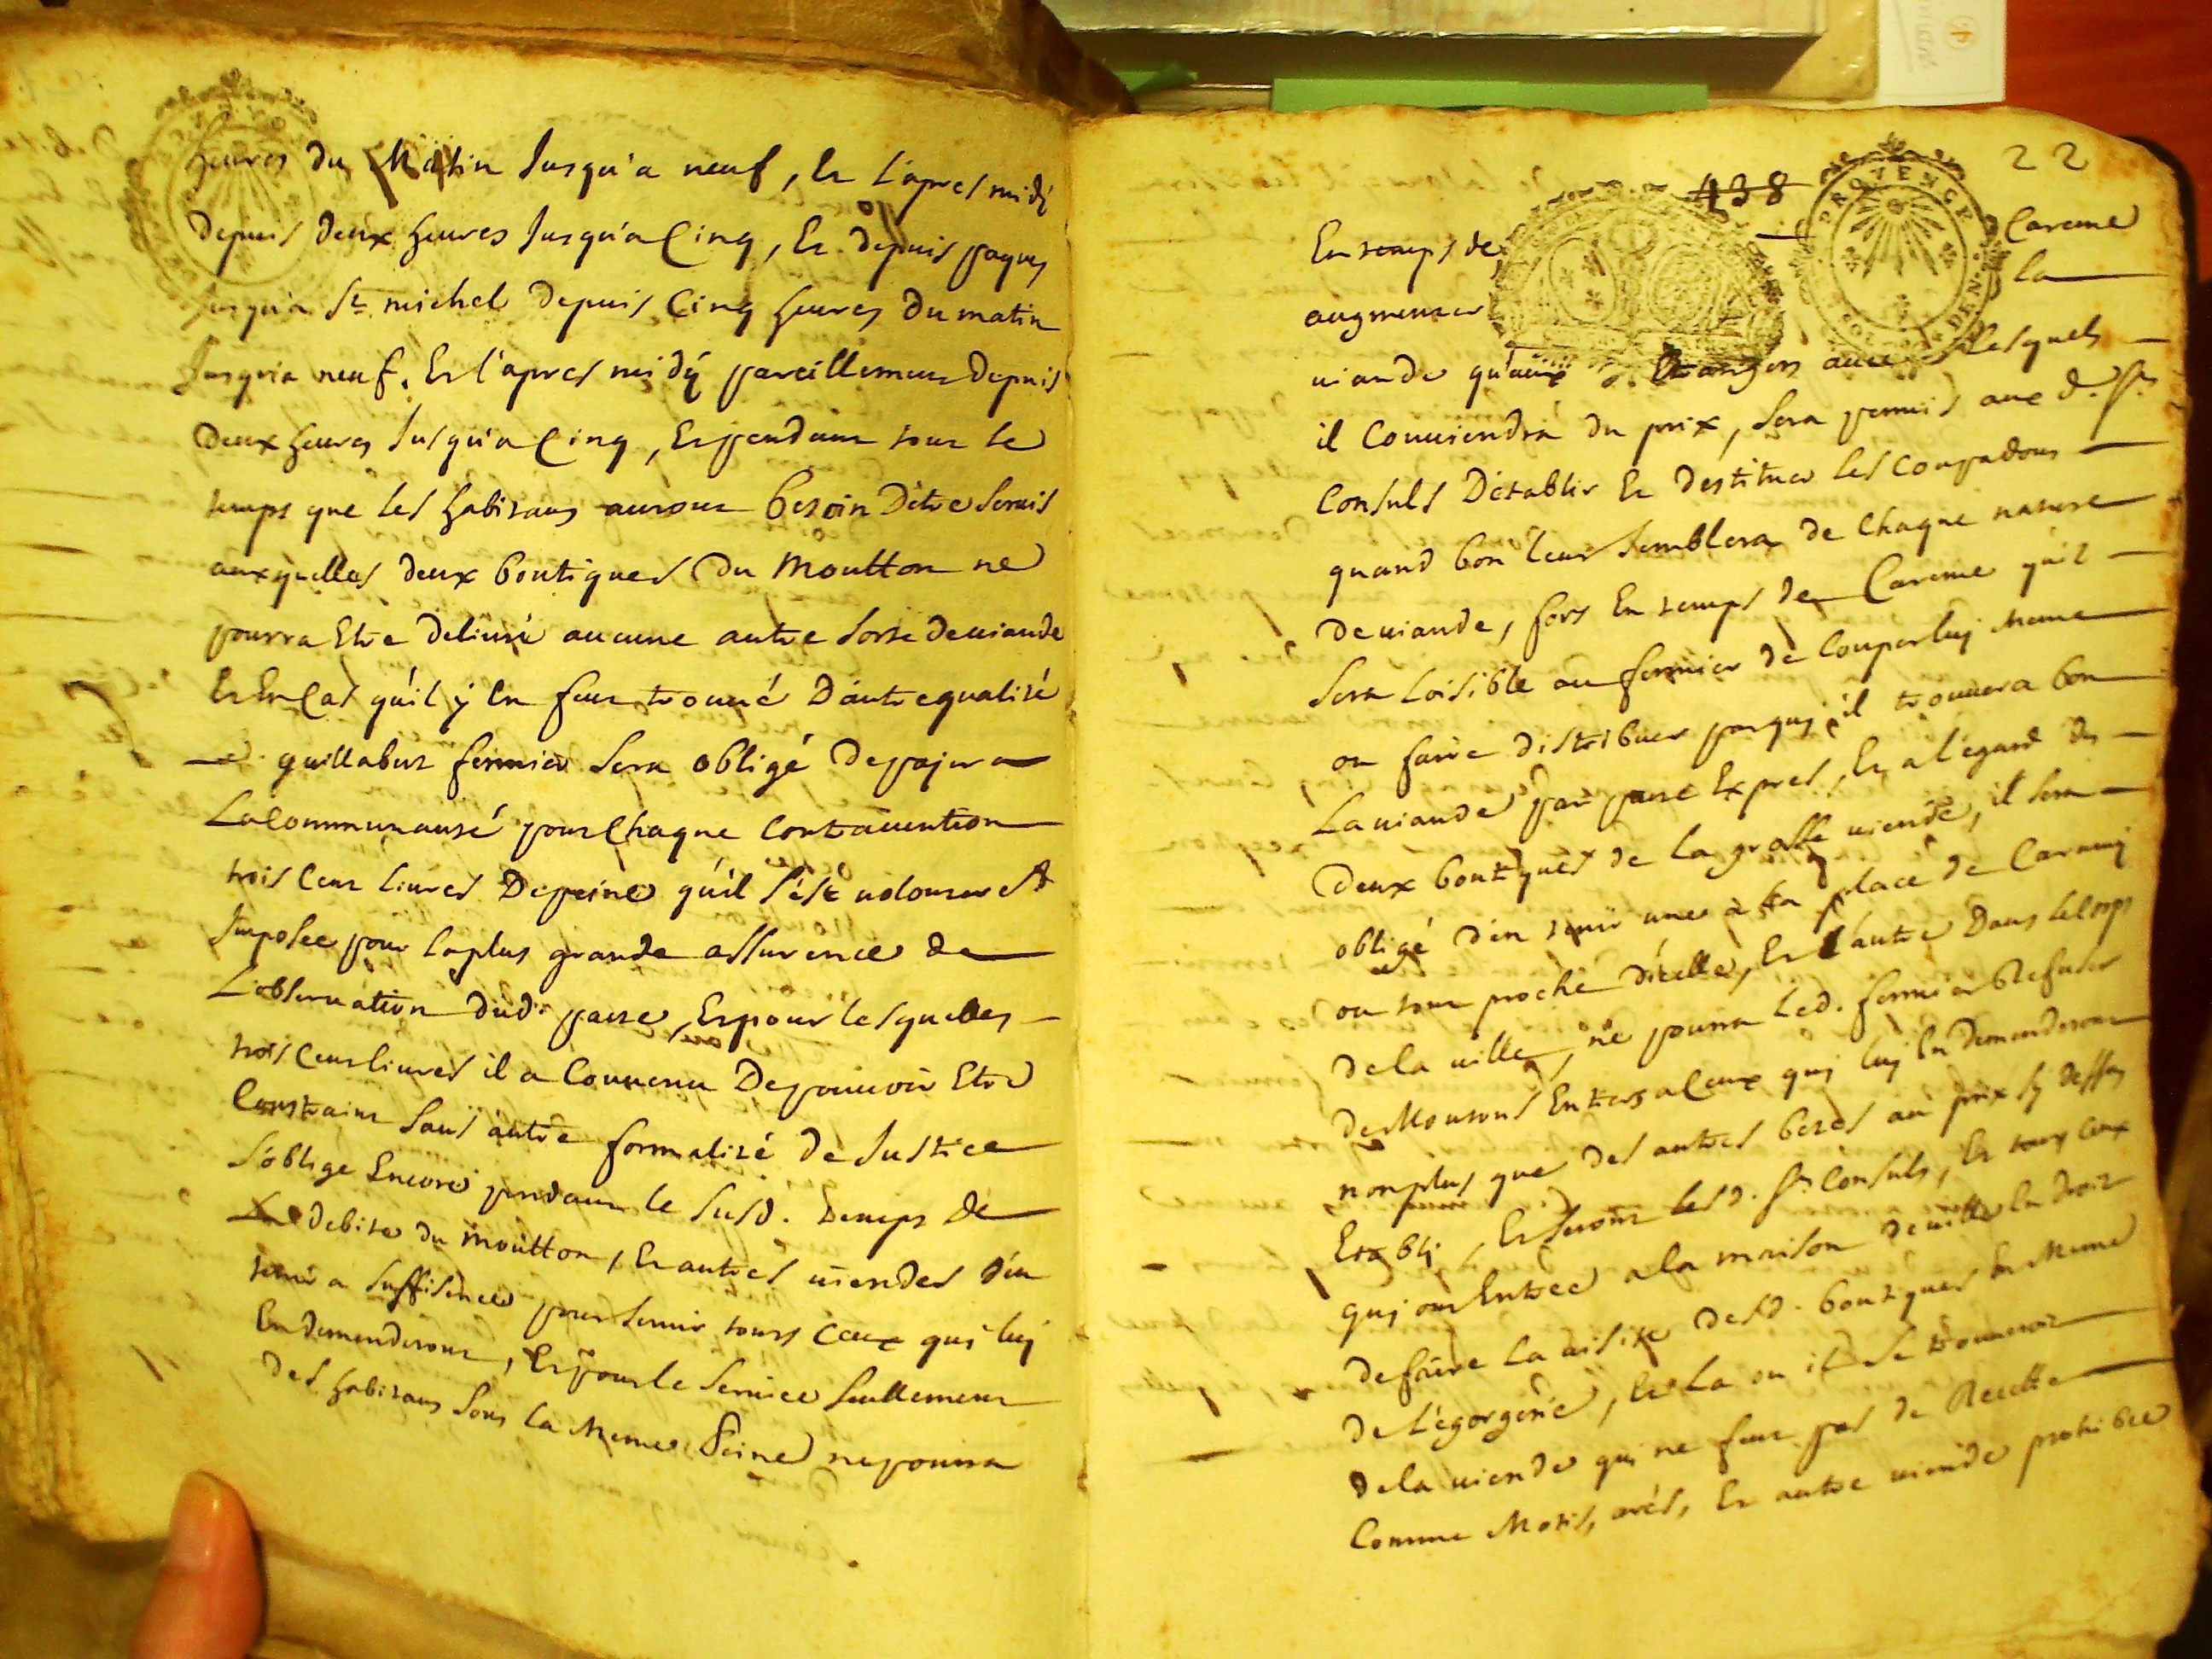 heures du Matin Jusqu'a neuf, Et L'apres midy
Depuis deux heures Jusqu'a Cinq, Et depuis paques
Jusqu'a St. michel Depuis Cinq heures Du matin
Jusqu'a neuf, Et l'apres midÿ pareillement Depuis
Deux heures Jusqu'a Cinq, Et pendant tout le
temps que les habitans auront besoin D'etre servis
auxquelles deux boutiques Du Moutton ne
pourra Etre delivré aucune autre Sorte de viande
Et En Cas qu'il ÿ En fut trouvé D'autre qualité
guillabert fermier Sera obligé De pajer a
La Communauté pour Chaque Contravention
trois Cent Livres De peine qu'il s'est volont
Imposée pour la plus grande assurence de
L'observation dud. pacte, Et pour lesquelles
trois Cent livres il a Convenu De pouvoir Etre
Constraint Sans autre formalité de Justice
S'oblige Encore pendant le Susd. temps de
debite du moutton, Et autres viendes d'en
tenir a Suffisence pour servir touts Ceux qui luj
En demanderont, Et pour le Service Seullement
Des habitans Sous la Meme Peine ne pourra
22
438
PROVENCE
En temps de Careme
augmenter la
viande qu'aux Etrangers avec Lesquels
il Conviendra du prix, Sera permis aux d. Srs
Consuls D'etablir Et destituer les Coupadous
quand bon leur Semblera de Chaque nature
De viande, fors En temps de Careme qu'il
Sera Loisible au fermier de Couper luj Meme
ou faire distribuer par quj il trouvera bon
La viande par pacte Expres, Et a l'egard des
Deux boutiques de la grosse viende, il Sera
obligé d'en tenir une a la place de Caramj
ou tout proche d'icelle, Et L'autre Dans le Corps
De la ville, ne pourra Led. fermier Refuser
De Moutons Entiers a Ceux quj luj En demanderont
non plus que des autres betes au prix Sy dessus
Etablj, Et seront lesd. Srs Consuls, Et tous Ceux
quj ont Entrée a la maison de ville En droit
De faire La visite desd. boutiques Et Meme
De L'egorgerie, Et La ou il Se trouveroit
De la viende quj ne fut pas de Recette
Comme Ares, Et autre viende prohibee